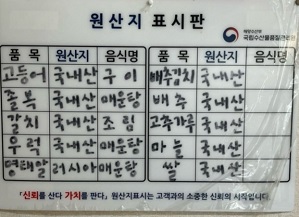 원산지 표시판
해양수산부
국립수산물품질관리원
품 목 원산지 음식명 품 목 원산지 음식명
고등어 국내산 구이 배추김치 국내산
졸복 국내산 매운탕 배추 국내산
갈치 국내산 조림 고춧가루 국내산
우럭 국내산 매운탕 마늘 국내산
명태알 러시아 매운탕 쌀 국내산
「신뢰를 산다 가치를 판다」 원산지표시는 고객과의 소중한 신뢰의 시작입니다.